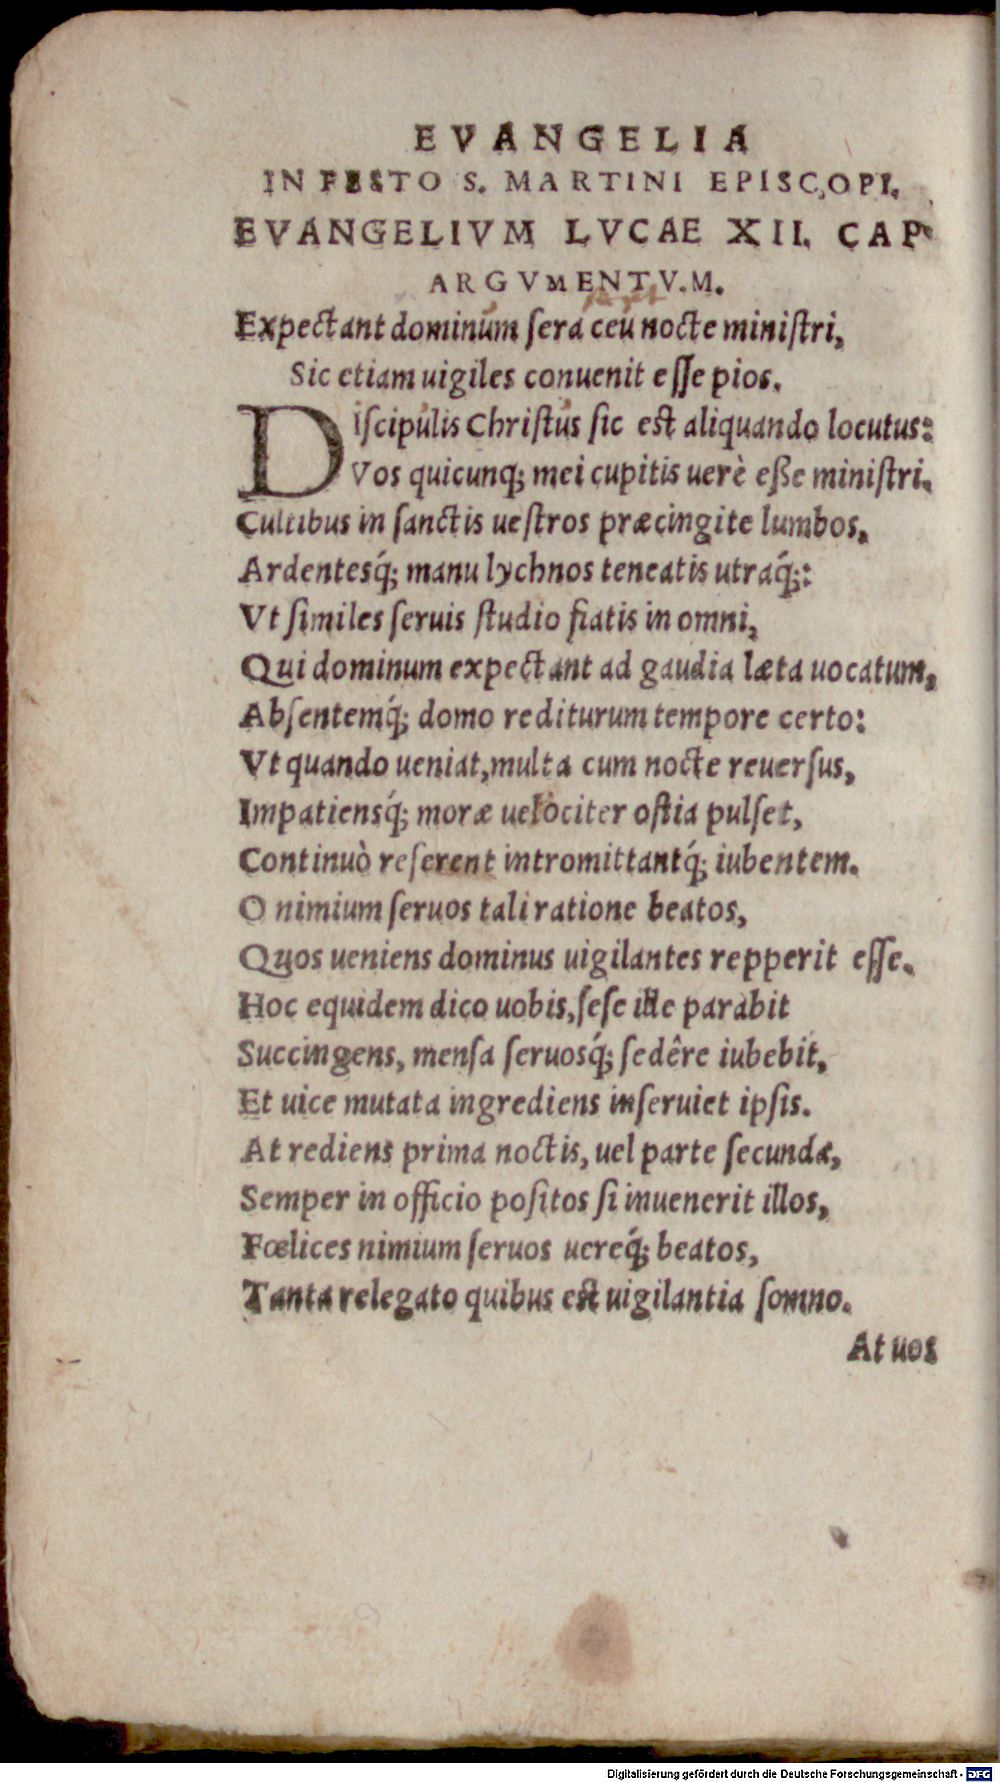 EVANGELIA
IN FESTO S. MARTINI EPISCOPI.
EVANGELIVM LVCAE XII. CAP.
ARGVMENTVM.
Expectant dominum ſera ceu nocte miniſtri,
Sic etiam uigiles conuenit eſſe pios.
Diſcipulis Chriſtus ſic eſt aliquando locutus:
Vos quicunq; mei cupitis uerè eſſe miniſtri.
Cultibus in ſanctis ueſtros præcingite lumbos,
Ardentesq́; manu lychnos teneatis utraq́;:
Vt ſimiles ſeruis ſtudio fiatis in omni,
Qui dominum expectant ad gaudia læta uocatum,
Abſentemq́; domo rediturum tempore certo:
Vt quando ueniat, multa cum nocte reuerſus,
Impatiensq́; moræ uelociter oſtia pulſet,
Continuò reſerent intromittantq́; iubentem.
O nimium ſeruos tali ratione beatos,
Quos ueniens dominus uigilantes repperit eſſe.
Hoc equidem dico uobis, ſeſe ille parabit
Succingens, menſa ſeruosq́; ſedêre iubebit,
Et uice mutata ingrediens inſeruiet ipſis.
At rediens prima noctis, uel parte ſecunda,
Semper in officio poſitos ſi inuenerit illos,
Fœlices nimium ſeruos uereq́; beatos,
Tanta relegato quibus eſt uigilantia ſomno.
At uos
Digitalisierung gefördert durch die Deutsche Forschungsgemeinschaft - DFG